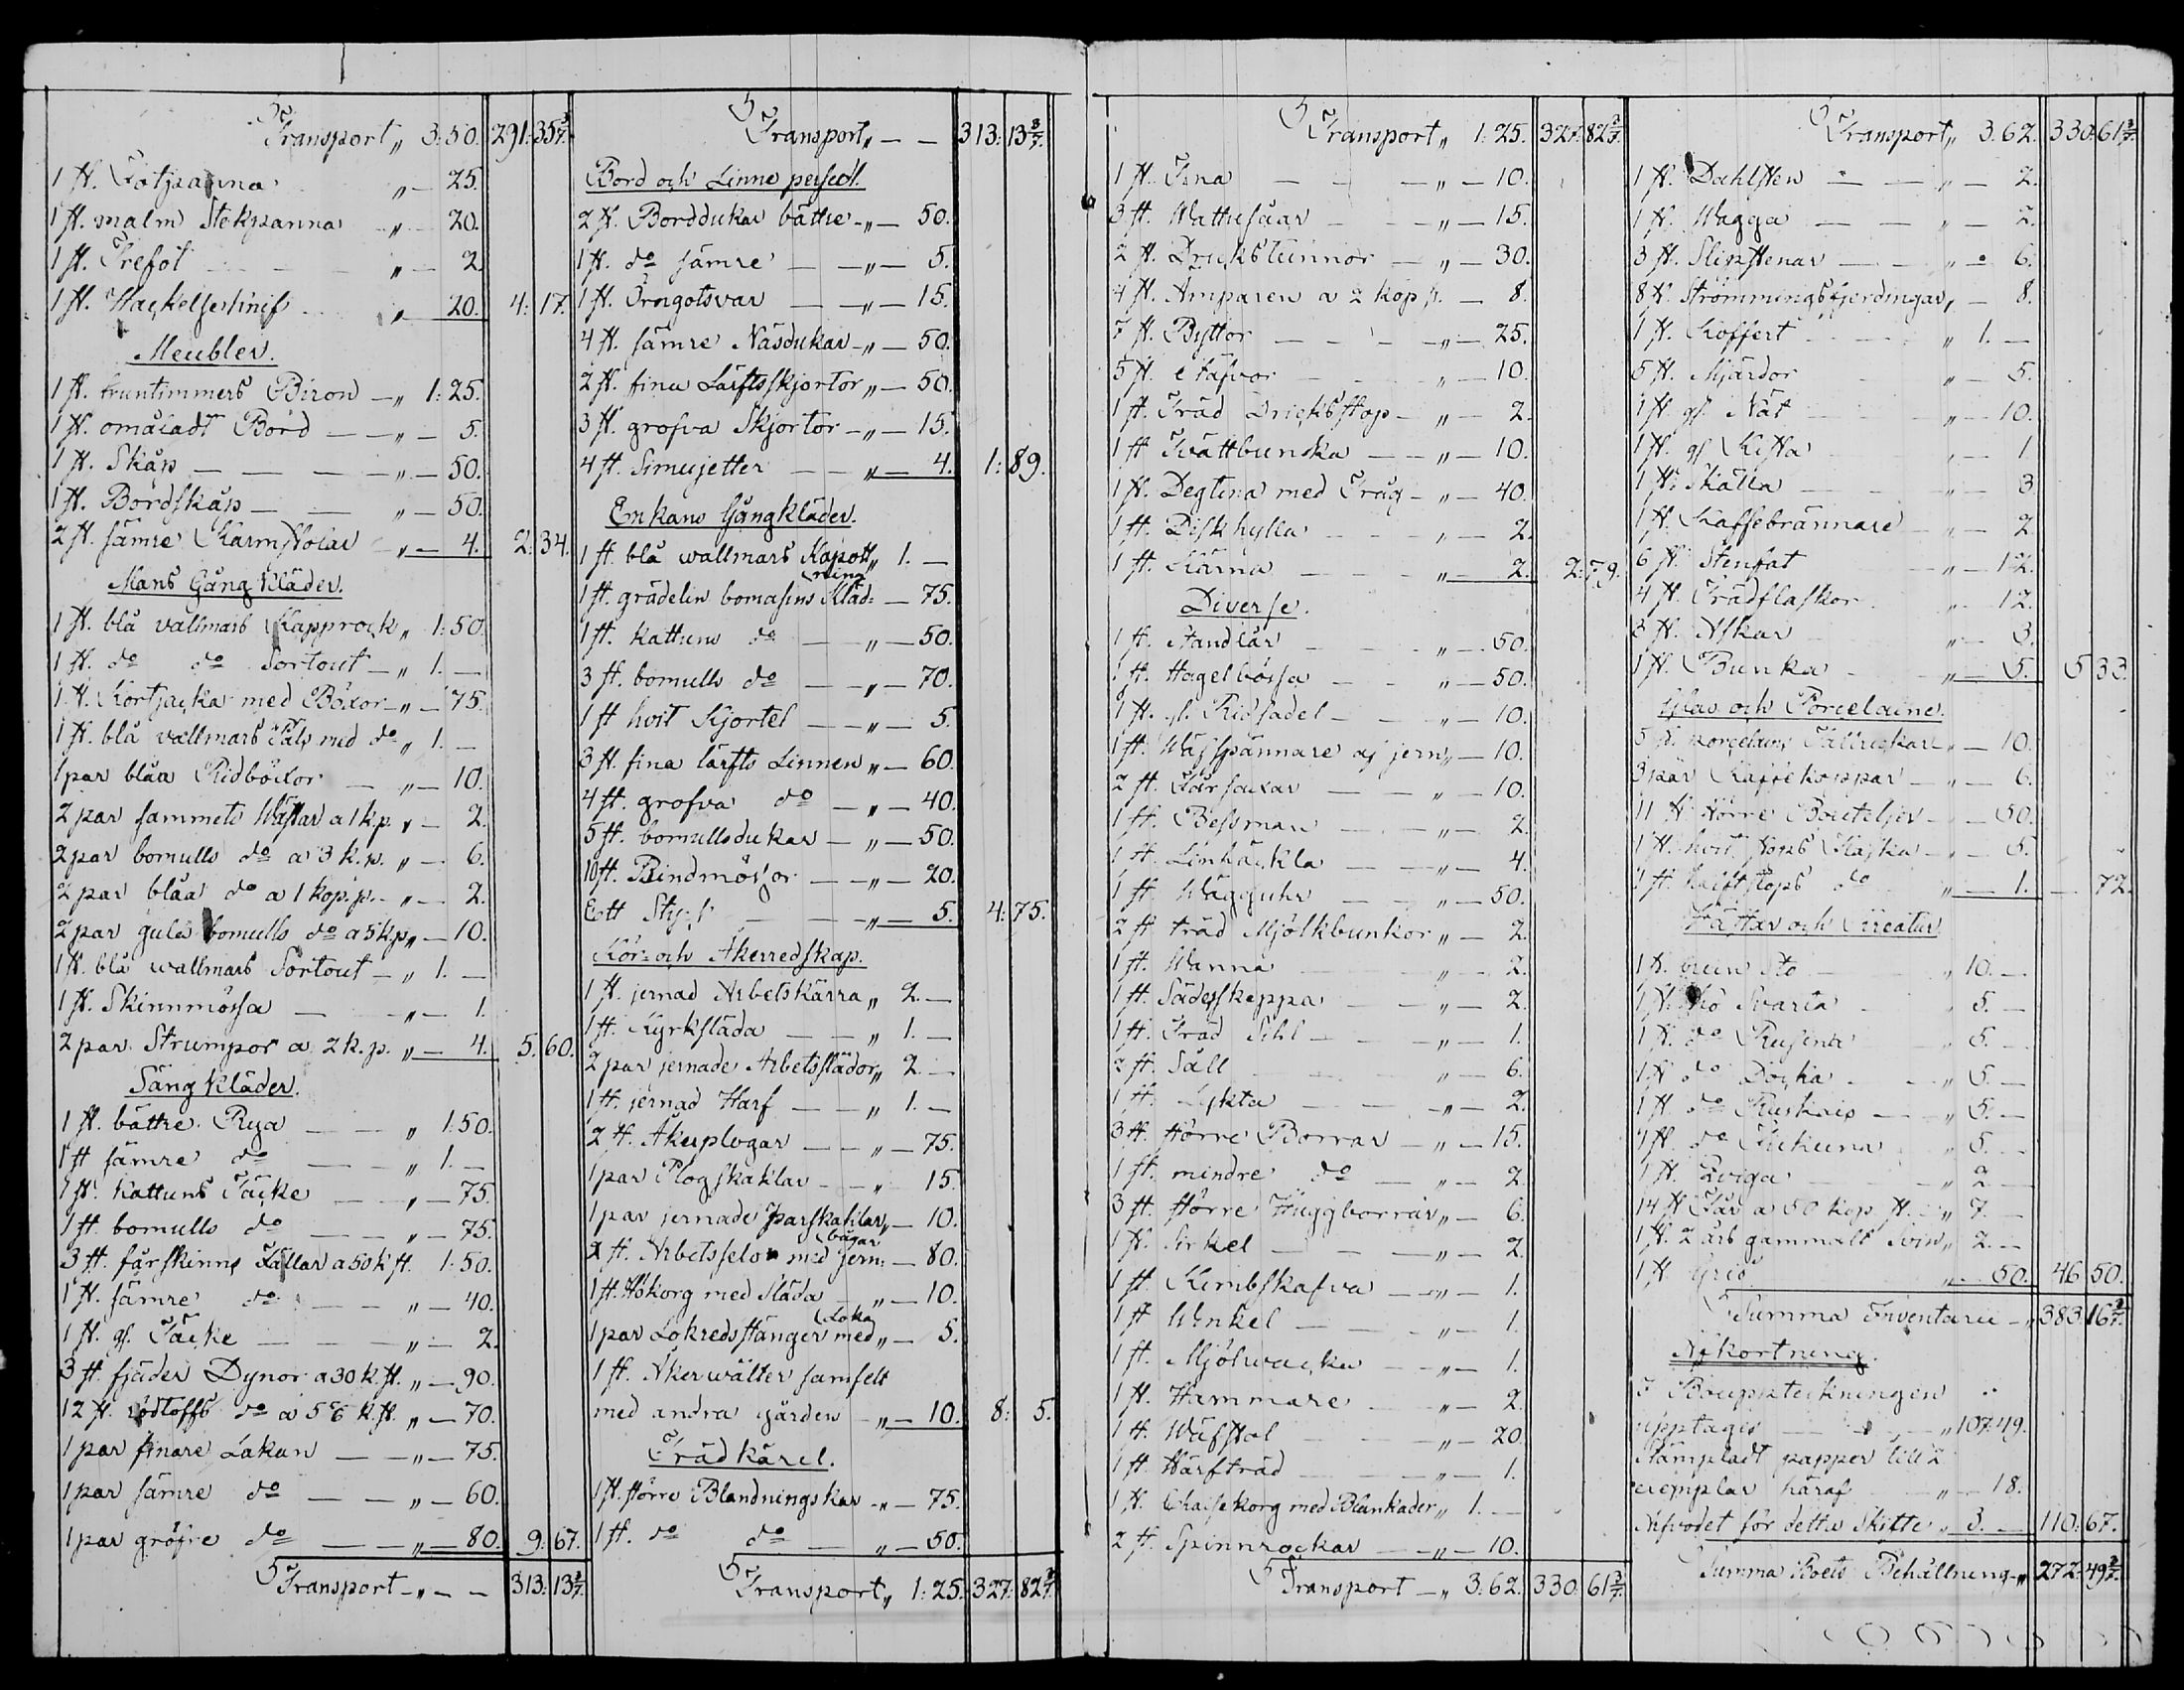 Transport „ 3:50. 291:35 3/7.
1 st. Fotpanna „ — 25.
1 st. malm Stekpanna „ — 20.
1 st. Trefot „ — 2.
1 st. Hackelseknif „ — 20. 4:17.
Meubler.
1 st. fruntimmers Biron — „ 1:25.
1 st. omåladt Bord — „ — 5.
1 st. Skåp — „ — 50.
1 st. Bordskåp — „ — 50.
2 st. sämre Karmstolar „ — 4. 2:34.
Mans Gångkläder.
1 st. blå vallmars Kapprock „ 1:50.
1 st. do do Sortout — „ 1. —
1 st. Kortjacka med Böxor — „ — 75.
1 st. blå vallmars Päls med do „ 1. —
1 par blåa Ridböxor — „ — 10.
2 par sammets Wästar a 1 k.p. „ — 2.
2 par bomulls do a 3 k.p. „ — 6.
2 par blåa do a 1 kop.p. — „ — 2.
2 par gula bomulls do a 5 k.p. „ — 10.
1 st. blå wallmars Sortout — „ 1. —
1 st. Skinnmössa — „ — 1.
2 par Strumpor a 2 k.p. „ — 4. 5.60.
Sängkläder.
1 st. bättre Rya — „ 1:50.
1 st sämre do — „ 1. —
1 st. Kattuns Täcke — „ — 75.
1 st bomulls do — — 75.
3 st. fårskinns Fällar a 50 k st. 1:50.
1 st. sämre do — „ — 40.
1 st. gl. Täcke — „ — 2.
3 st. fjäder Dynor a 30 k st. „ — 90.
12 st. do a 5 6 k. st. „ — 70.
1 par finare Lakan — „ — 75.
1 par sämre do — „ — 60.
1 par gröfre do — „ — 80. 9:67.
Transport — „ — 313:13 3/7.
Transport „ — — 313:13 3/7.
Bord och Linne persedl.
2 st. Borddukar bättre — „ — 50.
1 st. do sämre — „ — 5.
1 st. Örngotsvar — „ — 15.
4 st. sämre Näsdukar — „ — 50.
2 st. fina Lärftsskjortor „ — 50.
3 st. grofva Skjortor — „ — 15.
4 st. — „ — 4. 1:89.
Enkans Gångkläder.
1 st. blå wallmars Kapott „ 1. —
1 st. grådelin bomasins Kläd= ning — 75.
1 st. Kattuns do — „ — 50.
3 st. bomulls do — „ — 70.
1 st hvit Kjortel — „ — 5.
3 st. fina lärfts Linnen „ — 60.
4 st. grofva do — „ — 40.
5 st. bomullsdukar — „ — 50.
10 st. Bindmössor — „ — 20.
Ett — „ — 5. 4:75.
Kör- och Åkerredskap.
1 st. jernad Arbetskärra „ 2. —
1 st. Kyrksläda — „ 1. —
2 par jernade Arbetsslädor „ 2. —
1 st. jernad Harf — „ 1. —
2 st. Åkerplogar — „ — 75.
1 par Plogskaklar — „ 15.
1 par jernade Parskaklar „ — 10.
2 st. Arbetsselor med jern= bågar — 80.
1 st. Hökorg med Släda „ — 10.
1 par Lokredsstänger med Loka „ — 5.
1 st. Åkerwälter samfelt
med andra gården — „ — 10. 8: 5.
Trädkäril.
1 st. större Blandningskar — „ — 75.
1 st. do do — „ — 50.
Transport „ 1:25. 327:82 3/7.
Transport „ 1:25. 327:82 3/7.
1 st. Tina — „ — 10.
3 st. Wattusåar — „ — 15.
2 st. Drickstunnor — „ — 30.
4 st. Ämparen a 2 kop. p. — 8.
7 st. Byttor — „ — 25.
5 st. Stäfvor — „ — 10.
1 st. Träd Dricksstop — „ — 2.
1 st Tvättbunka — „ — 10.
1 st. Degtina med Tråg — „ — 40.
1 st. Diskhylla — „ — 2.
1 st. Kärna — „ — 2. 2:79.
Diverse.
1 st. Handlår — „ — 50.
1 st. Hagelbössa — „ — 50.
1 st. gl. Ridsadel — „ — 10.
1 st. Wäfspännare af jern „ — 10.
2 st. Fårsaxar — „ — 10.
1 st. Bessman — „ — 2.
1 st. Linhäckla — „ — 4.
1 st. Wäggur — „ — 50.
2 st träd Mjölkbunkor „ — 2.
1 st. Wanna — „ — 2.
1 st. Sädesskeppa — „ — 2.
1 st. Träd Sihl — „ — 1.
2 st. Såll — „ — 6.
1 st. Lykta — „ — 2.
3 st. större Borrar — „ — 15.
1 st. mindre do — „ — 2.
3 st. större Huggborrar „ — 6.
1 st. Sirkel — „ — 2.
1 st Kimbskafva — „ — 1.
1 st Winkel — „ — 1.
1 st. — „ — 1.
1 st. Hammare — „ — 2.
1 st. Wäfstol — „ — 20.
1 st. Härfträd — „ — 1.
1 st. Chaisekorg med „ 1. —
2 st. Spinnrockar — „ — 10.
Transport — „ 3:62. 330:61 3/7.
Transport „ 3.62. 330:61 3/7.
1 st. Dahlsten — „ — 2.
1 st. Wagga — „ — 2.
3 st. Slipstenar — „ — 6.
8 st. Strömmingsfjerdingar „ — 8.
1 st. Koffert — „ 1. —
5 st. Mjärdor — 5.
1 st. gl. Nät — 10.
1 st. gl Kista — 1.
1 st. Skälla — „ — 3.
1 st. Kaffebrännare — „ — 2.
6 st. Stenfat — „ — 12.
4 st. Trädflaskor „ — 12.
3 st. Askar „ — 3.
1 st. Bunka — „ — 5. 5 33.
Glas och Porcelaine.
5 st. porcelains Tallrickar „ — 10.
3 par Kaffekoppar — „ — 6.
11 st. större Bouteljer — 50.
1 st. hvit stops Flaska — „ — 5.
1 st. halfstops do „ — 1. — 72.
Hästar och Creatur
1 st. brun Sto „ 10. —
1 st. Ko Svarta „ 5. —
1 st. do Rusina „ 5. —
1 st do Docka „ 5. —
1 st do — „ 5. —
1 st. do „ 5. —
1 st. Qviga „ 2. —
14 st Får a 50 kop. st. „ 7. —
1 st. 2 års gammalt Svin „ 2. —
1 st. Gris „ — 50. 46 50.
Summa Inventarii — „ 383:16 3/7.
Afkortning.
I Bouppteckningen
upptages — „ 107:49.
Stämpladt papper till 2
exemplar häraf „ — 18.
Arfvodet för detta Skifte „ 3. — 110:67.
Summa Boets Behållning „ 272:49 3/7.